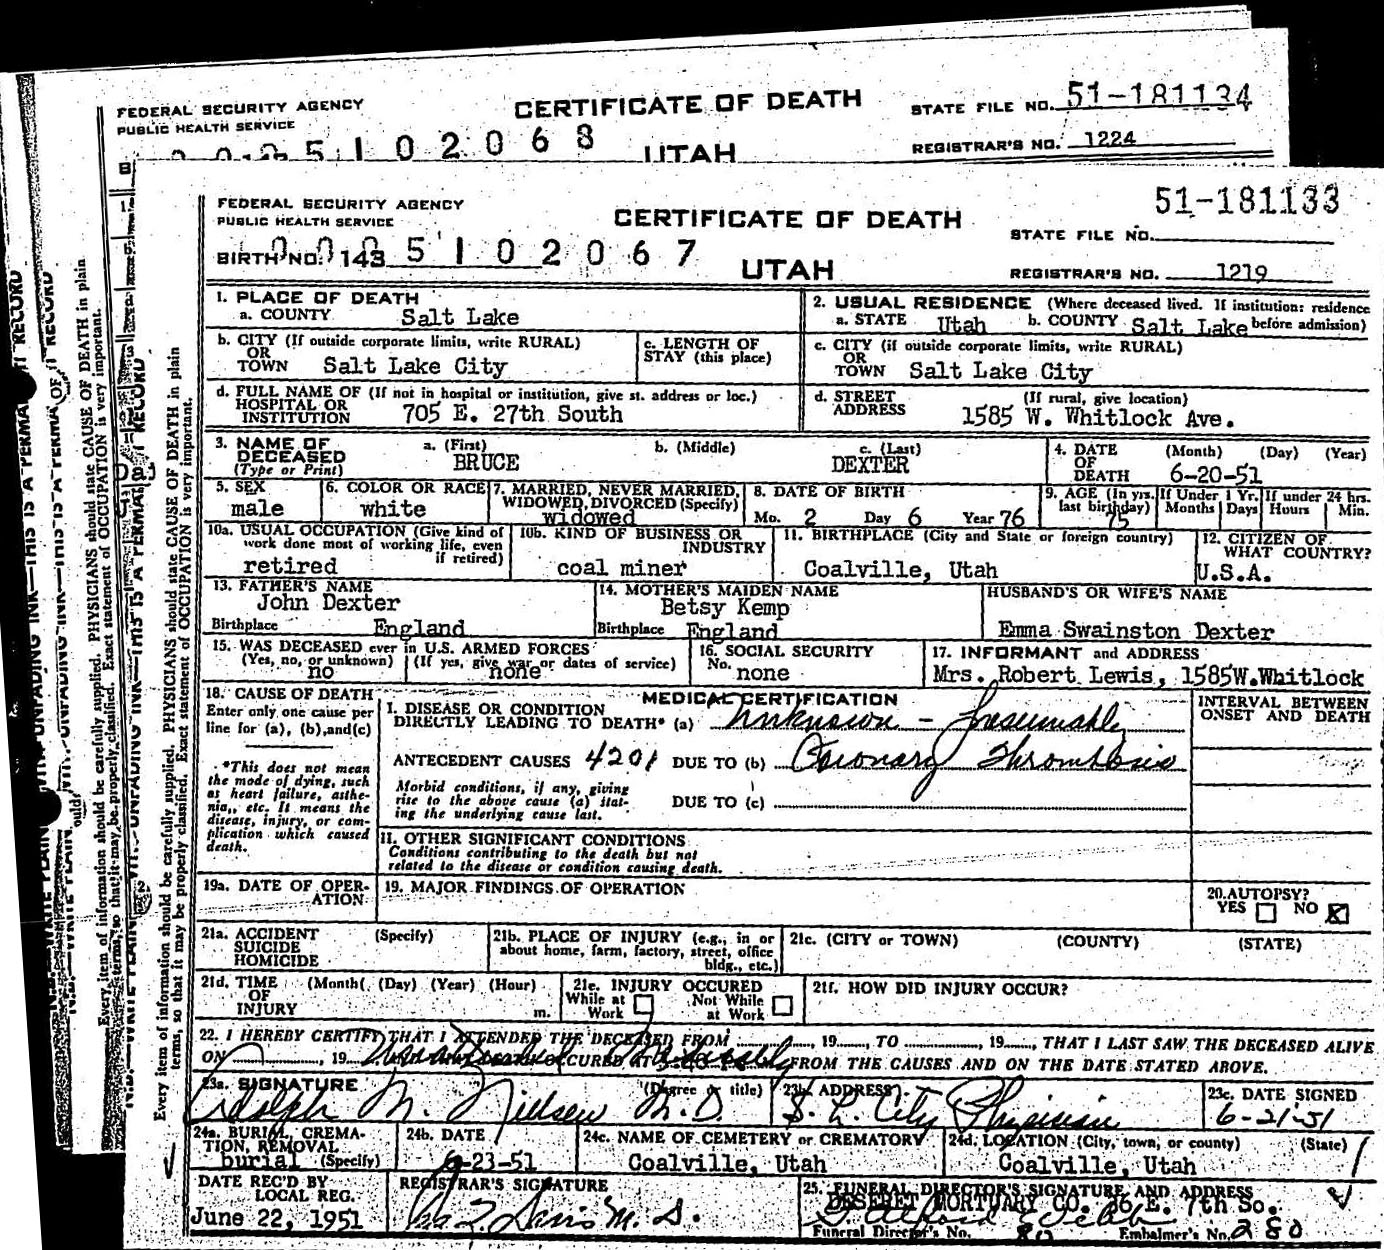 FEDERAL SECURITY AGENCY
PUBLIC HEALTH SERVICE
CERTIFICATE OF DEATH
STATE FILE NO. 51-181134
5102068
UTAH
REGISTRAR'S NO. 1224
FEDERAL SECURITY AGENCY
PUBLIC HEALTH SERVICE
CERTIFICATE OF DEATH
51-181133
STATE FILE NO.
BIRTH NO. 143 5102067
UTAH
REGISTRAR'S NO. 1219
1. PLACE OF DEATH
a. COUNTY Salt Lake
2. USUAL RESIDENCE (Where deceased lived. If institution: residence
a. STATE Utah b. COUNTY Salt Lake before admission)
b. CITY (If outside corporate limits, write RURAL)
OR
TOWN Salt Lake City
c. LENGTH OF
STAY (this place)
c. CITY (if outside corporate limits, write RURAL)
OR
TOWN Salt Lake City
d. FULL NAME OF (If not in hospital or institution, give st. address or loc.)
HOSPITAL OR
INSTITUTION 705 E. 27th South
d. STREET (If rural, give location)
ADDRESS 1585 W. Whitlock Ave.
3. NAME OF
DECEASED
(Type or Print)
a. (First)
BRUCE
b. (Middle)
c. (Last)
DEXTER
4. DATE (Month) (Day) (Year)
OF
DEATH 6-20-51
5. SEX
male
6. COLOR OR RACE
white
7. MARRIED, NEVER MARRIED,
WIDOWED, DIVORCED (Specify)
widowed
8. DATE OF BIRTH
Mo. 2 Day 6 Year 76
9. AGE (In yrs.
last birthday)
75
If Under 1 Yr.
Months Days
If under 24 hrs.
Hours Min.
10a. USUAL OCCUPATION (Give kind of
work done most of working life, even
if retired)
retired
10b. KIND OF BUSINESS OR
INDUSTRY
coal miner
11. BIRTHPLACE (City and State or foreign country)
Coalville, Utah
12. CITIZEN OF
WHAT COUNTRY?
U.S.A.
13. FATHER'S NAME
John Dexter
Birthplace England
14. MOTHER'S MAIDEN NAME
Betsy Kemp
Birthplace England
HUSBAND'S OR WIFE'S NAME
Emma Swainston Dexter
15. WAS DECEASED ever in U.S. ARMED FORCES
(Yes, no, or unknown) (If yes, give war or dates of service)
no none
16. SOCIAL SECURITY
No. none
17. INFORMANT and ADDRESS
Mrs. Robert Lewis, 1585W.Whitlock
18. CAUSE OF DEATH
Enter only one cause per
line for (a), (b), and (c)
*This does not mean
the mode of dying, such
as heart failure, asthe-
nia, etc. It means the
disease, injury, or com-
plication which caused
death.
MEDICAL CERTIFICATION
I. DISEASE OR CONDITION
DIRECTLY LEADING TO DEATH* (a) Unknown - Presumably
ANTECEDENT CAUSES 4201 DUE TO (b) Coronary Thrombosis
Morbid conditions, if any, giving
rise to the above cause (a) stat-
ing the underlying cause last.
DUE TO (c)
II. OTHER SIGNIFICANT CONDITIONS
Conditions contributing to the death but not
related to the disease or condition causing death.
INTERVAL BETWEEN
ONSET AND DEATH
19a. DATE OF OPER-
ATION
19. MAJOR FINDINGS OF OPERATION
20. AUTOPSY?
YES NO X
21a. ACCIDENT (Specify)
SUICIDE
HOMICIDE
21b. PLACE OF INJURY (e.g., in or
about home, farm, factory, street, office
bldg., etc.)
21c. (CITY or TOWN) (COUNTY) (STATE)
21d. TIME (Month) (Day) (Year) (Hour)
OF
INJURY m.
21e. INJURY OCCURED
While at Work Not While at Work
21f. HOW DID INJURY OCCUR?
22. I HEREBY CERTIFY THAT I ATTENDED THE DECEASED FROM , 19 , TO , 19 , THAT I LAST SAW THE DECEASED ALIVE
ON , 19 OCCURED FROM THE CAUSES AND ON THE DATE STATED ABOVE.
23a. SIGNATURE (Degree or title)
Adolph M. Nielsen M.D.
23b. ADDRESS
S. L. City Physician
23c. DATE SIGNED
6-21-51
24a. BURIAL, CREMA-
TION, REMOVAL
burial (Specify)
24b. DATE
6-23-51
24c. NAME OF CEMETERY or CREMATORY
Coalville, Utah
24d. LOCATION (City, town, or county) (State)
Coalville, Utah
DATE REC'D BY
LOCAL REG.
June 22, 1951
REGISTRAR'S SIGNATURE
25. FUNERAL DIRECTOR'S SIGNATURE AND ADDRESS
DESERET MORTUARY CO. 36 E. 7th So.
Funeral Director's No. Embalmer's No. 280
Every item of information should be carefully supplied. PHYSICIANS should state CAUSE OF DEATH in plain
terms, so that it may be properly classified. Exact statement of OCCUPATION is very important.